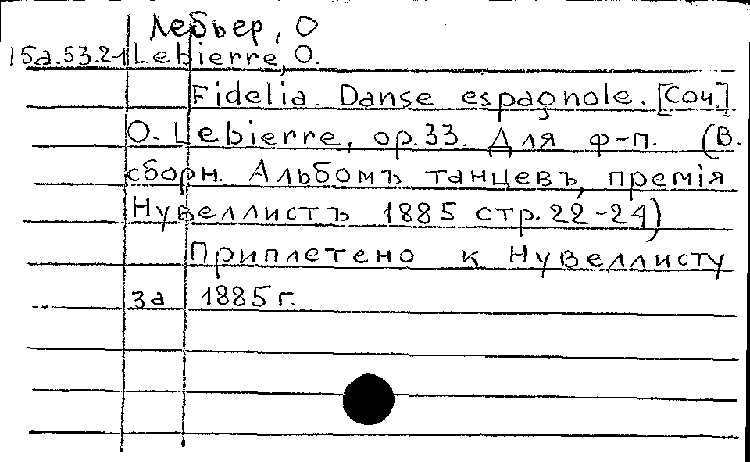 Лебьер, О
15а.53.21 Lebierre, O.
Fidelia. Danse espagnole. [Соч.]
O. Lebierre, op. 33. Для ф-п. (В.
сборн. Альбомъ танцевъ, премія
Нувеллистъ 1885 стр. 22-24)
Приплетено к Нувеллисту
за 1885 г.